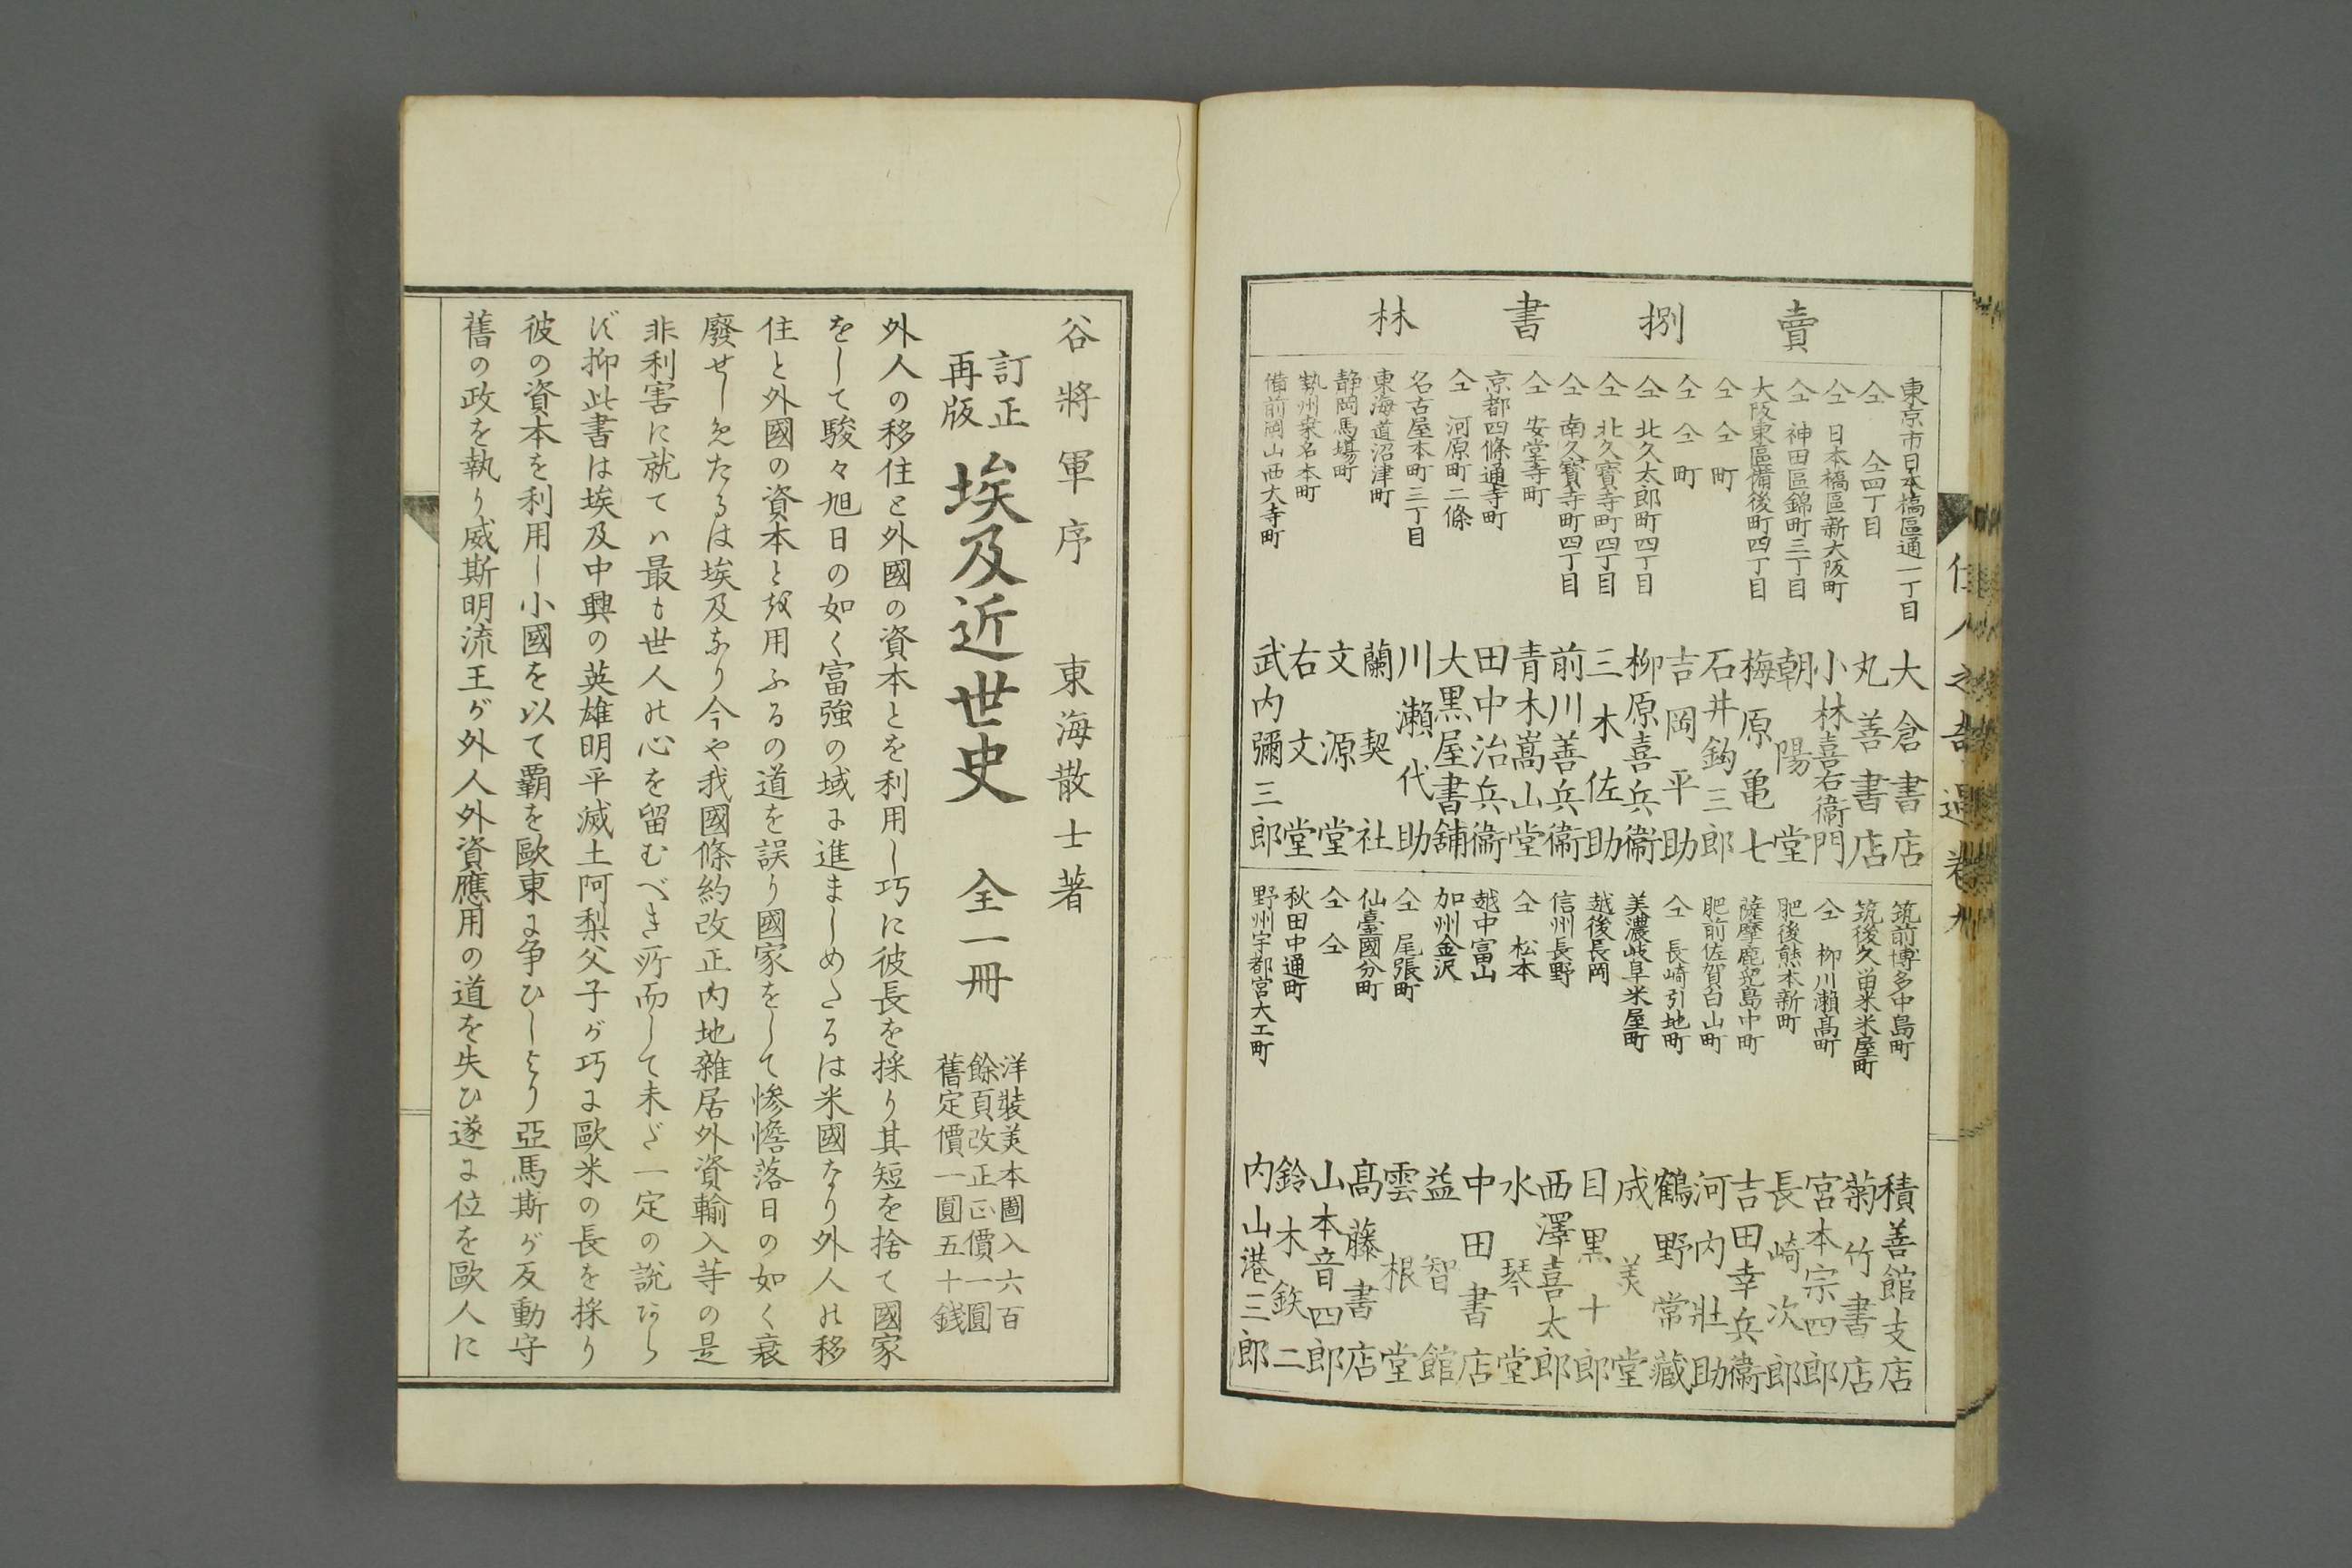 賣捌書林
東京市日本橋區通一丁目 大倉書店
仝 仝四丁目 丸善書店
仝 日本橋區新大阪町 小林喜右衞門
仝 神田區錦町三丁目 朝陽堂
大阪東區備後町四丁目 梅原亀七
仝 仝町 石井鈎三郎
仝 仝町 吉岡平助
仝 北久太郎町四丁目 柳原喜兵衞
仝 北久寳寺町四丁目 三木佐助
仝 南久寳寺町四丁目 前川善兵衞
仝 安堂寺町 青木嵩山堂
京都四條通寺町 田中治兵衞
仝 河原町二條 大黒屋書舗
名古屋本町三丁目 川瀬代助
東海道沼津町 蘭契社
静岡馬場町 文源堂
勢州桑名本町 右文堂
備前岡山西大寺町 武内彌三郎
筑前博多中島町 積善館支店
筑後久留米米屋町 菊竹書店
仝 柳川瀬髙町 宮本宗四郎
肥後熊本新町 長崎次郎
薩摩鹿児島中町 吉田幸兵衞
肥前佐賀白山町 河内壯助
仝 長崎引地町 鶴野常藏
美濃岐阜米屋町 成美堂
越後長岡 目黒十郎
信州長野 西澤喜太郎
仝 松本 水琴堂
越中富山 中田書店
加州金沢 益智館
仝 尾張町 雲根堂
仙臺國分町 髙藤書店
仝 仝 山本音四郎
秋田中通町 鈴木鉄二
野州宇都宮大工町 内山港三郎
佳人之奇遇卷九
谷將軍序 東海散士著
訂正再版 埃及近世史 全一冊 洋裝美本圖入六百餘頁改正正價一圓舊定價一圓五十錢
外人の移住と外國の資本とを利用し巧に彼長を採り其短を捨て國家
をして駿々旭日の如く富強の域に進ましめたるは米國なり外人の移
住と外國の資本とを用ふるの道を誤り國家をして惨憺落日の如く衰
廢せしめたるは埃及なり今や我國條約改正内地雜居外資輸入等の是
非利害に就てハ最も世人の心を留むべき所而して未だ一定の説あら
ず抑此書は埃及中興の英雄明平滅土阿梨父子が巧に歐米の長を採り
彼の資本を利用し小國を以て覇を歐東に争ひしより亞馬斯が反動守
舊の政を執り威斯明流王が外人外資應用の道を失ひ遂に位を歐人に